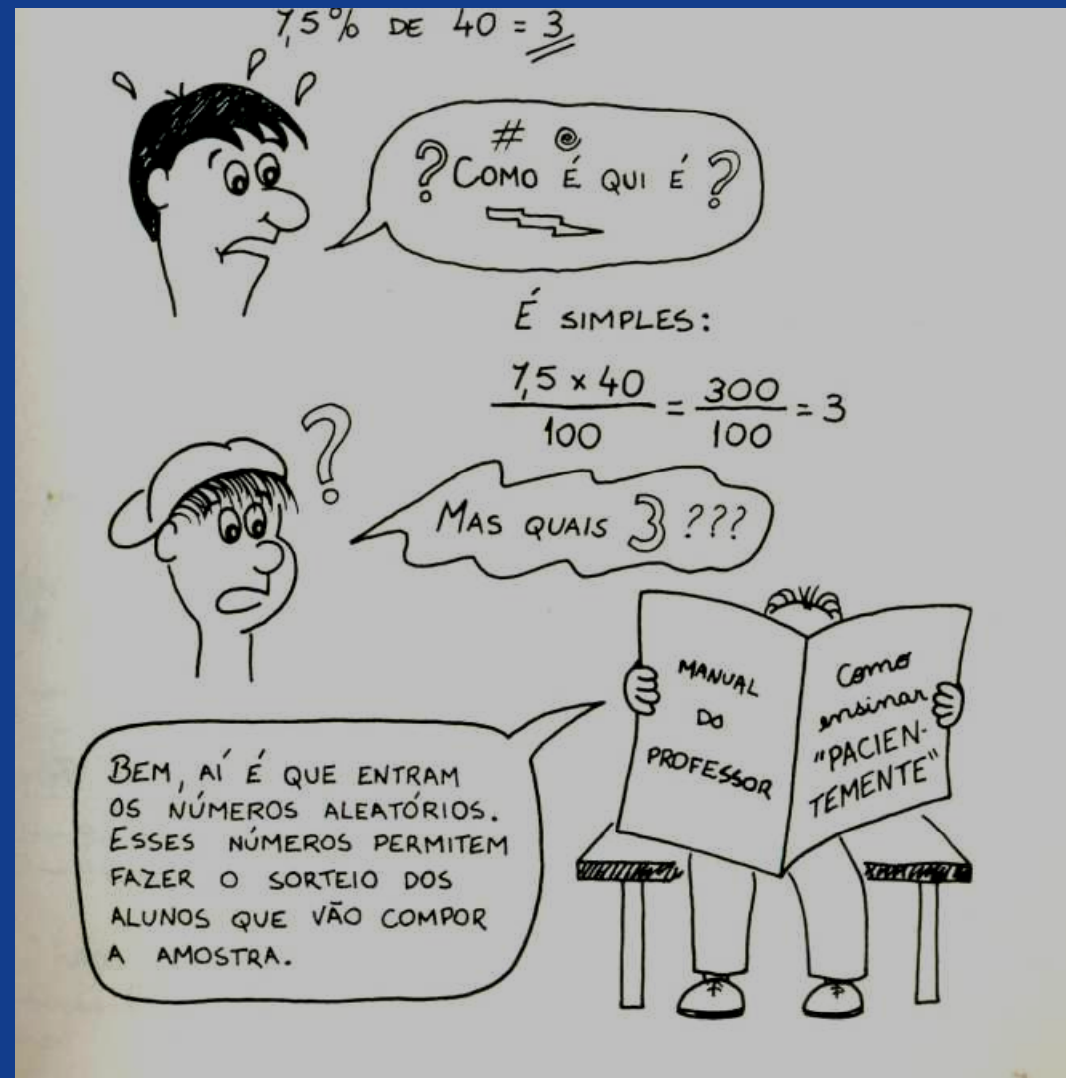 7,5% DE 40 = 3
# @
? COMO É QUI É ?
É SIMPLES:
7,5 x 40 / 100 = 300 / 100 = 3
?
MAS QUAIS 3 ???
MANUAL
DO
PROFESSOR
Como
ensinar
"PACIEN-
TEMENTE"
BEM, AÍ É QUE ENTRAM
OS NÚMEROS ALEATÓRIOS.
ESSES NÚMEROS PERMITEM
FAZER O SORTEIO DOS
ALUNOS QUE VÃO COMPOR
A AMOSTRA.